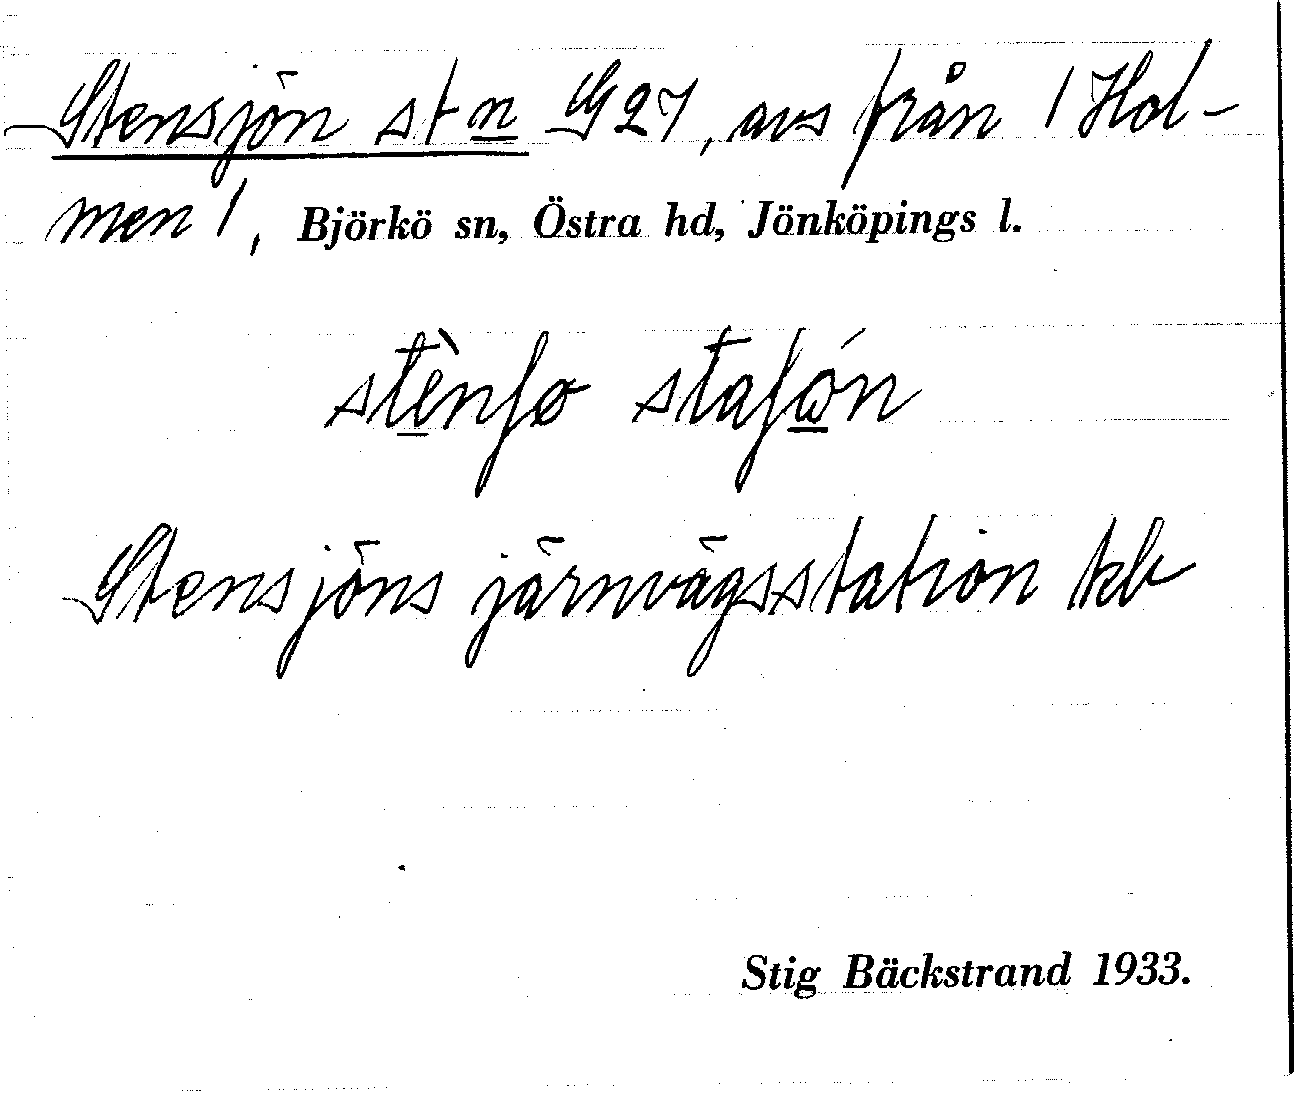 Stensjön stn G27, avs från 1 Hol-
men 1, Björkö sn, Östra hd, Jönköpings l.
stènʃø staʃón
Stensjöns järnvägsstation kb
Stig Bäckstrand 1933.